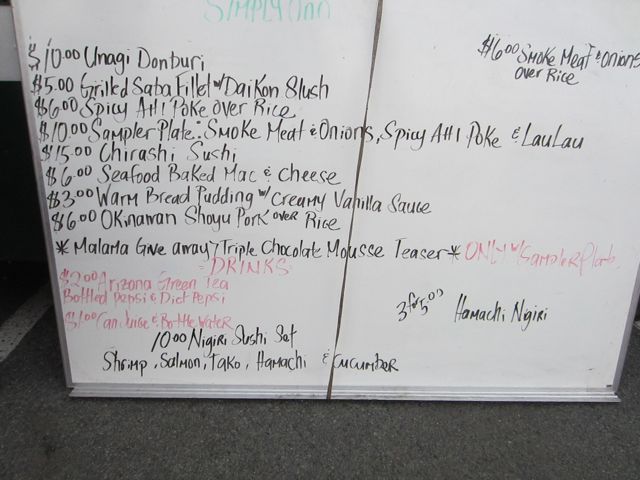 SIMPLY Ono
$10.00 Unagi Donburi
$6.00 Smoke Meat & Onions
over Rice
$5.00 Grilled Saba Fillet w/ Daikon Slush
$6.00 Spicy Ahi Poke over Rice
$10.00 Sampler Plate: Smoke Meat & Onions, Spicy Ahi Poke & LauLau
$15.00 Chirashi Sushi
$6.00 Seafood Baked Mac & Cheese
$3.00 Warm Bread Pudding w/ Creamy Vanilla Sauce
$6.00 Okinawan Shoyu Pork over Rice
* Malama Give away ~ Triple Chocolate Mousse Teaser * ONLY w/ Sampler Plate
DRINKS
$2.00 Arizona Green Tea
Bottled Pepsi & Diet Pepsi
3 for 5.00 Hamachi Nigiri
$1.00 Can Juice & Bottle Water
10.00 Nigiri Sushi Set
Shrimp, Salmon, Tako, Hamachi & Cucumber